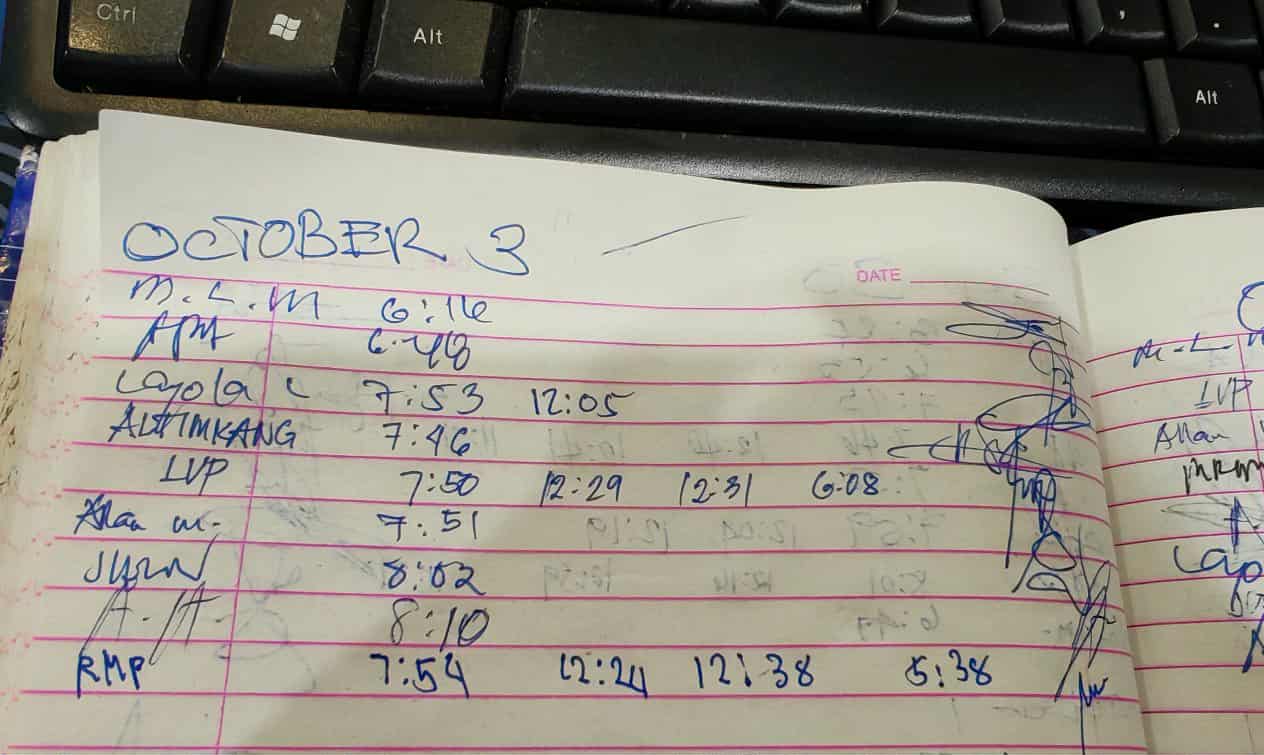 Ctrl Alt , .
Alt
OCTOBER 3
DATE
M.L.M 6:16
APM 6:48
Layola C 7:53 12:05
7:46
LVP 7:50 12:29 12:31 6:08
Alan M. 7:51
8:02
A.A. 8:10
RMP 7:54 12:24 12:38 5:38
M.L.
LVP
Allan